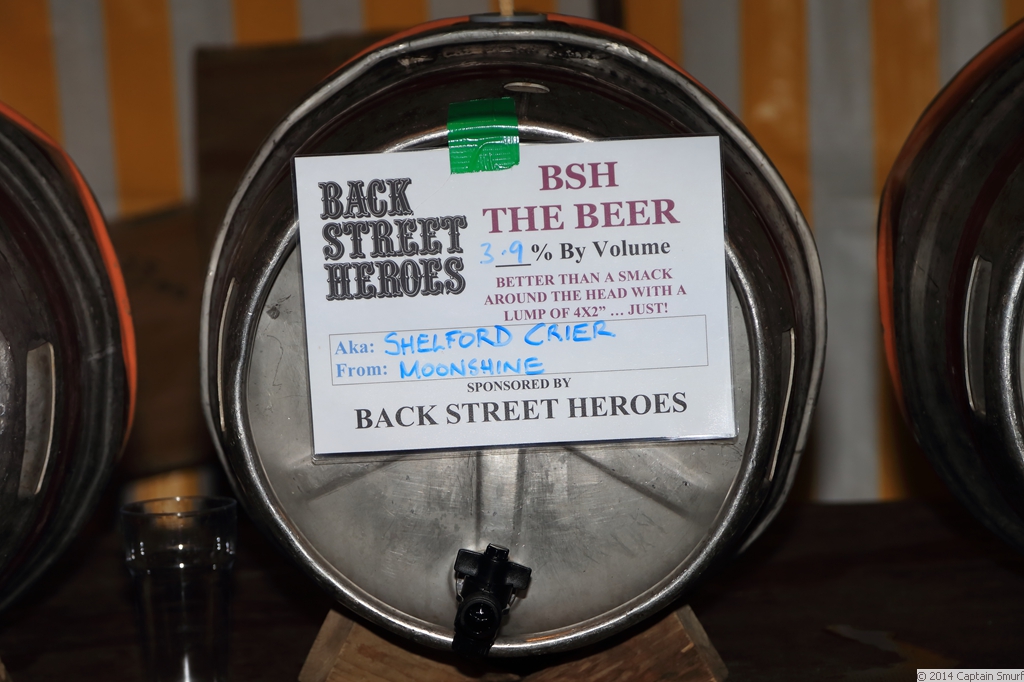 BACK
STREET
HEROES
BSH
THE BEER
3.9 % By Volume
BETTER THAN A SMACK
AROUND THE HEAD WITH A
LUMP OF 4X2" ... JUST!
Aka: SHELFORD CRIER
From: MOONSHINE
SPONSORED BY
BACK STREET HEROES
© 2014 Captain Smurf